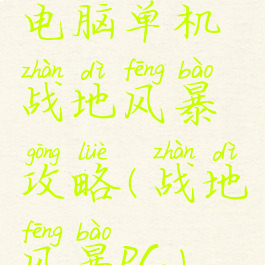 电脑单机
zhàn dì fēng bào
战地风暴
gōng lüè zhàn dì
攻略(战地
fēng bào
风暴PC)